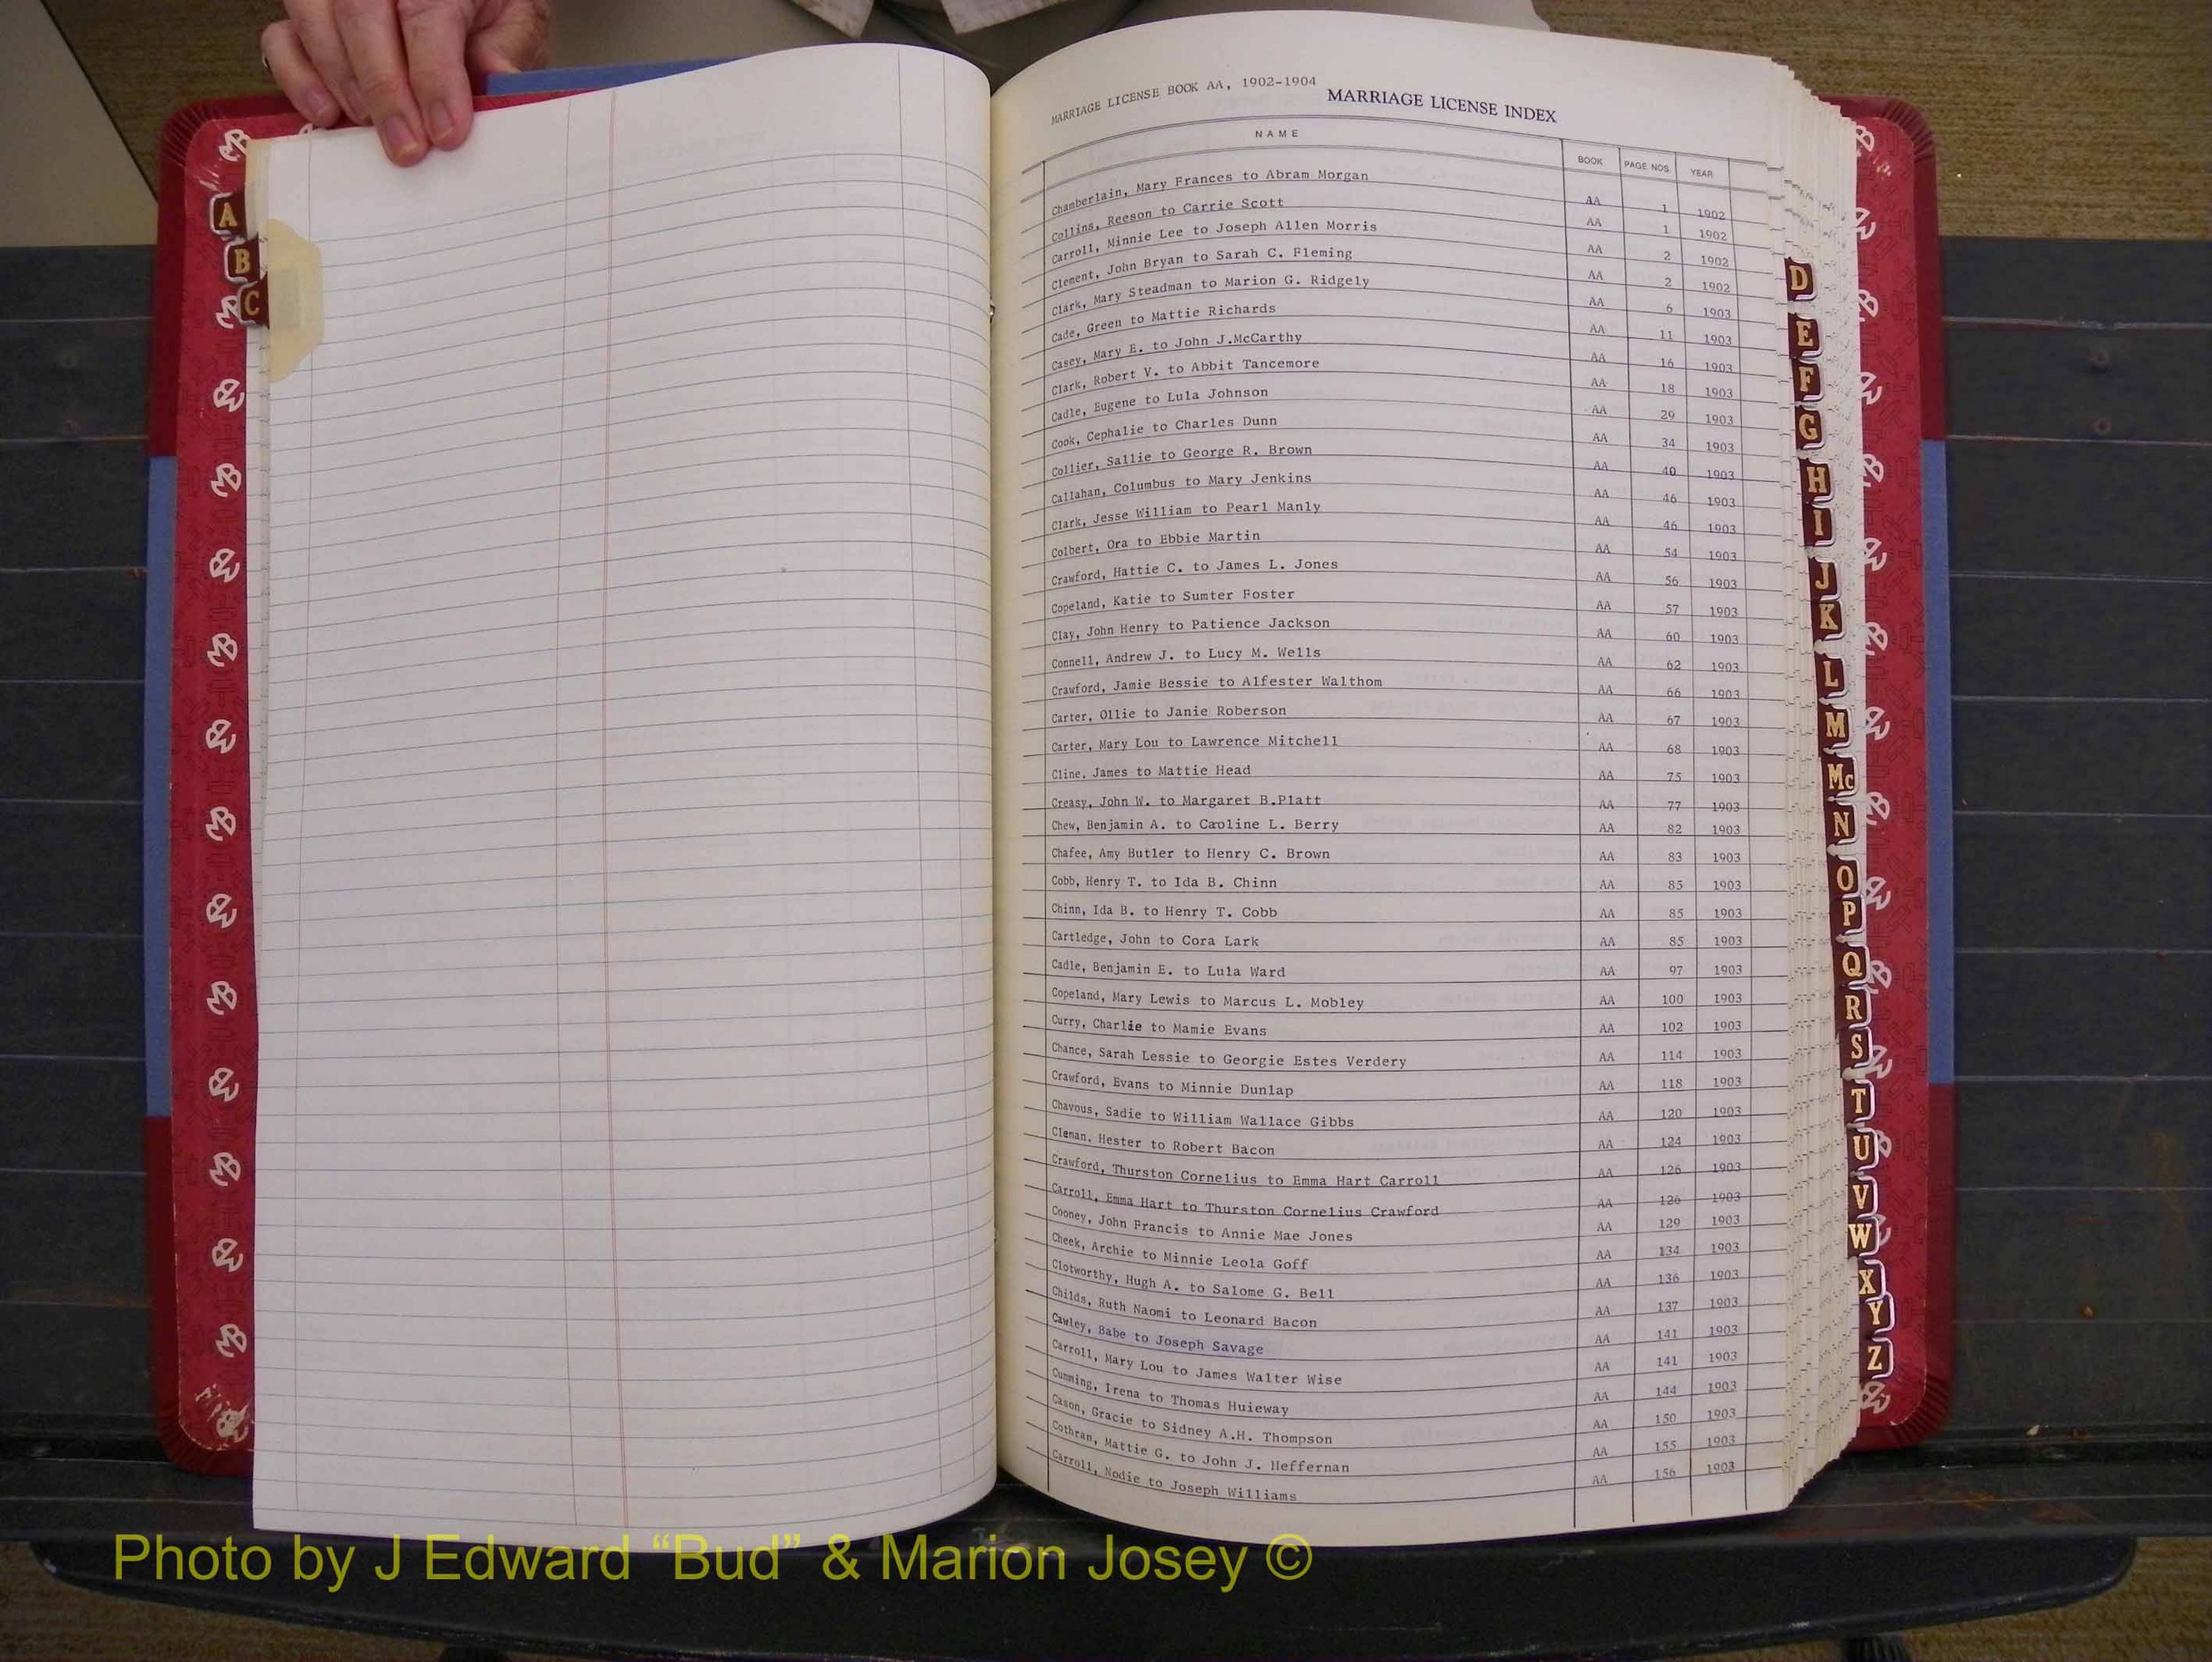 MARRIAGE LICENSE BOOK AA, 1902-1904
MARRIAGE LICENSE INDEX
NAME BOOK PAGE NOS. YEAR
Chamberlain, Mary Frances to Abram Morgan AA 1 1902
Collins, Reeson to Carrie Scott AA 1 1902
Carroll, Minnie Lee to Joseph Allen Morris AA 2 1902
Clement, John Bryan to Sarah C. Fleming AA 2 1902
Clark, Mary Steadman to Marion G. Ridgely AA 6 1903
Cade, Green to Mattie Richards AA 11 1903
Casey, Mary E. to John J.McCarthy AA 16 1903
Clark, Robert V. to Abbit Tancemore AA 18 1903
Cadle, Eugene to Lula Johnson AA 29 1903
Cook, Cephalie to Charles Dunn AA 34 1903
Collier, Sallie to George R. Brown AA 40 1903
Callahan, Columbus to Mary Jenkins AA 46 1903
Clark, Jesse William to Pearl Manly AA 46 1903
Colbert, Ora to Ebbie Martin AA 54 1903
Crawford, Hattie C. to James L. Jones AA 56 1903
Copeland, Katie to Sumter Foster AA 57 1903
Clay, John Henry to Patience Jackson AA 60 1903
Connell, Andrew J. to Lucy M. Wells AA 62 1903
Crawford, Jamie Bessie to Alfester Walthom AA 66 1903
Carter, Ollie to Janie Roberson AA 67 1903
Carter, Mary Lou to Lawrence Mitchell AA 68 1903
Cline, James to Mattie Head AA 75 1903
Creasy, John W. to Margaret B.Platt AA 77 1903
Chew, Benjamin A. to Caroline L. Berry AA 82 1903
Chafee, Amy Butler to Henry C. Brown AA 83 1903
Cobb, Henry T. to Ida B. Chinn AA 85 1903
Chinn, Ida B. to Henry T. Cobb AA 85 1903
Cartledge, John to Cora Lark AA 85 1903
Cadle, Benjamin E. to Lula Ward AA 97 1903
Copeland, Mary Lewis to Marcus L. Mobley AA 100 1903
Curry, Charlie to Mamie Evans AA 102 1903
Chance, Sarah Lessie to Georgie Estes Verdery AA 114 1903
Crawford, Evans to Minnie Dunlap AA 118 1903
Chavous, Sadie to William Wallace Gibbs AA 120 1903
Cleman, Hester to Robert Bacon AA 124 1903
Crawford, Thurston Cornelius to Emma Hart Carroll AA 126 1903
Carroll, Emma Hart to Thurston Cornelius Crawford AA 126 1903
Cooney, John Francis to Annie Mae Jones AA 129 1903
Cheek, Archie to Minnie Leola Goff AA 134 1903
Clotworthy, Hugh A. to Salome G. Bell AA 136 1903
Childs, Ruth Naomi to Leonard Bacon AA 137 1903
Cawley, Babe to Joseph Savage AA 141 1903
Carroll, Mary Lou to James Walter Wise AA 141 1903
Cumming, Irena to Thomas Huieway AA 144 1903
Cason, Gracie to Sidney A.H. Thompson AA 150 1903
Cothran, Mattie G. to John J. Heffernan AA 155 1903
Carroll, Nodie to Joseph Williams AA 156 1903
A
B
C
D
E
F
G
H
I
J
K
L
M
Mc
N
O
P
Q
R
S
T
U
V
W
X
Y
Z
Photo by J Edward “Bud” & Marion Josey ©